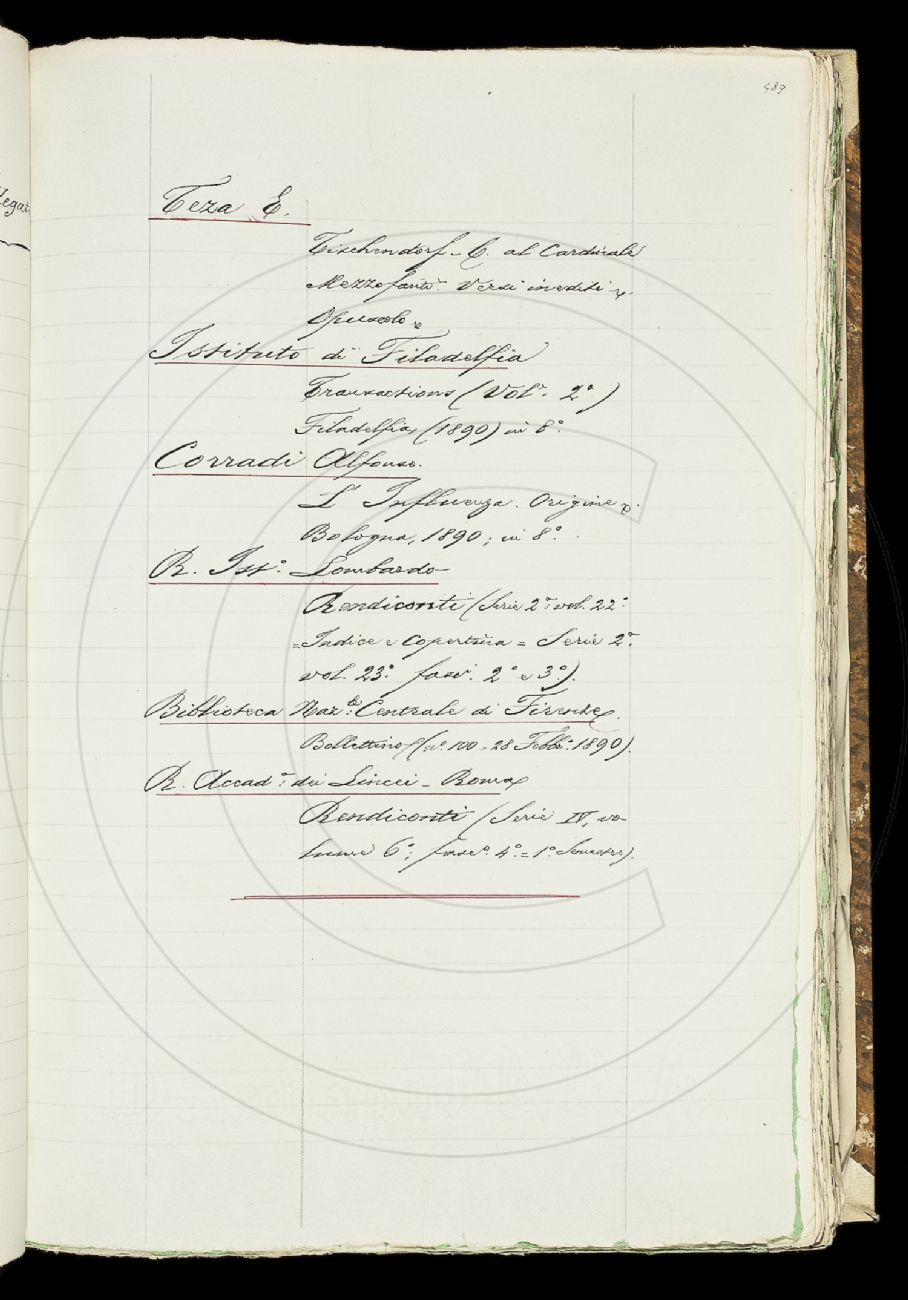 489
Teza E.
Tischendorf - C. al Cardinale
Mezzofanti. Versi inediti
Opuscolo
Istituto di Filadelfia
Transactions (Vol.e 2°)
Filadelfia, (1890) in 8°.
Corradi Alfonso.
L'Influenza. Origine
Bologna, 1890; in 8°.
R. Ist.° Lombardo
Rendiconti (Serie 2ª: vol. 22°:
= Indice e Copertina = Serie 2ª.
vol. 23° fasc.i 2° e 3°).
Biblioteca Naz.le Centrale di Firenze.
Bollettino (n° 100 = 28 Febb.° 1890).
R. Accad.ª dei Lincei - Roma
Rendiconti (Serie IV, vo-
lume 6°; fasc.° 4° = 1° Semestre).
legat